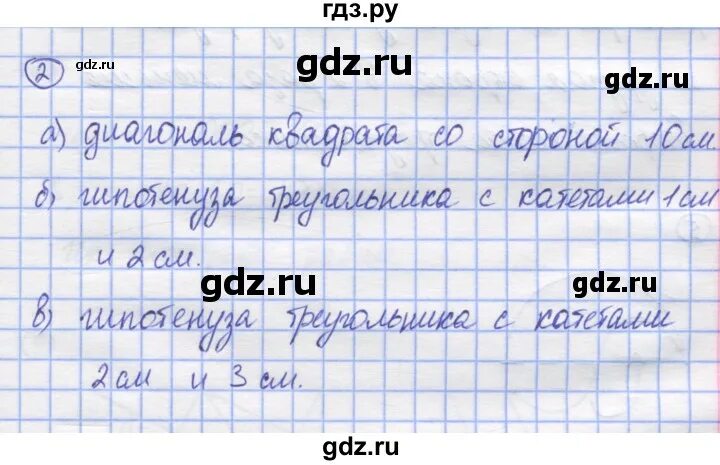 гдз.ру
2
gdz.ru
gdz.ru
gdz.ru
а) диагональ квадрата со стороной 10 см
б) гипотенуза треугольника с катетами 1 см
и 2 см.
gdz.ru
gdz.ru
в) гипотенуза треугольника с катетами
2 см и 3 см.
gdz.ru
gdz.ru
gdz.ru